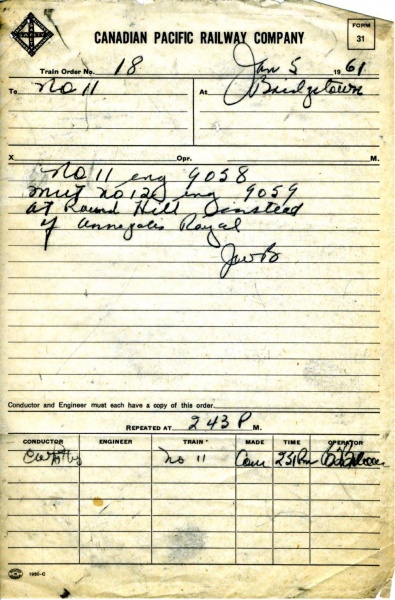 SAFETY
CANADIAN PACIFIC RAILWAY COMPANY
FORM
31
Train Order No. 18 Jan 5 1961
To No 11 At Bridgetown
X Opr. M.
No 11 eng 9058
meet no 12 eng 9059
at Round Hill instead
of Annapolis Royal
JWB
Conductor and Engineer must each have a copy of this order.
REPEATED AT 243 P M.
CONDUCTOR ENGINEER TRAIN MADE TIME OPERATOR
No 11 Com 251 Pm
1950-C